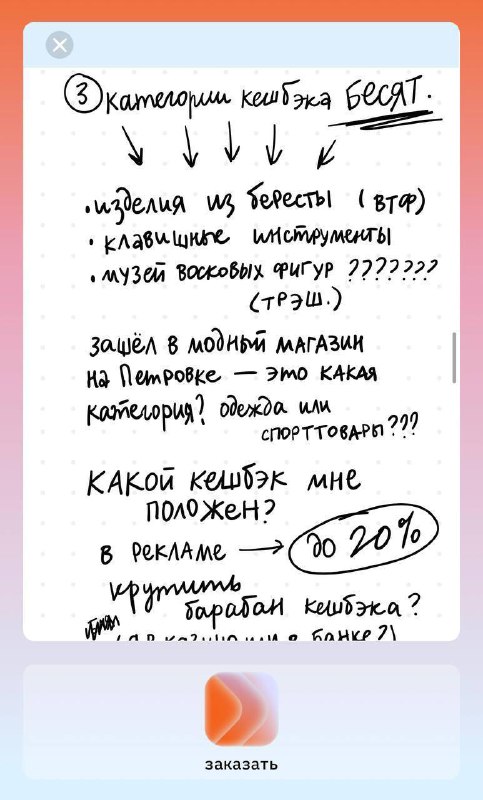 ③ категории кешбэка БЕСЯТ.
• изделия из бересты (ВТФ)
• клавишные инструменты
• музей восковых фигур ???????
(ТРЭШ.)
зашёл в модный магазин
на Петровке — это какая
категория? одежда или
спорттовары???
КАКОЙ КЕШБЭК МНЕ
ПОЛОЖЕН?
в рекламе → до 20%
крутить
барабан кешбэка?
(я в казино или в банке?)
заказать